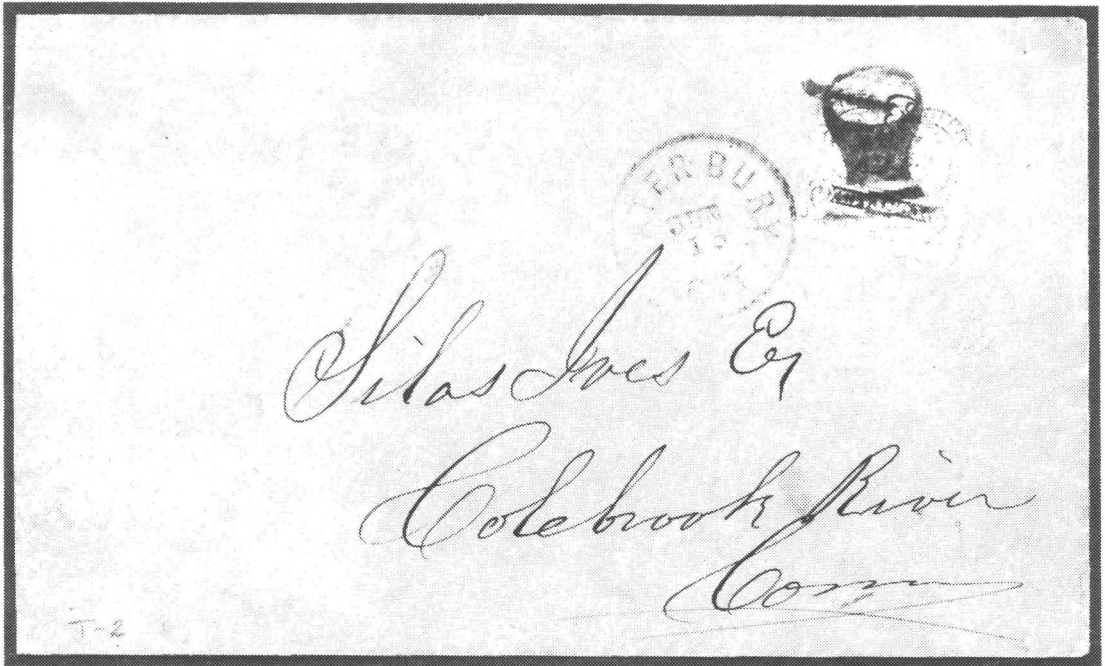 TERBURY
JUN
Silas Ives Esq
Colebrook River
Conn
T-2